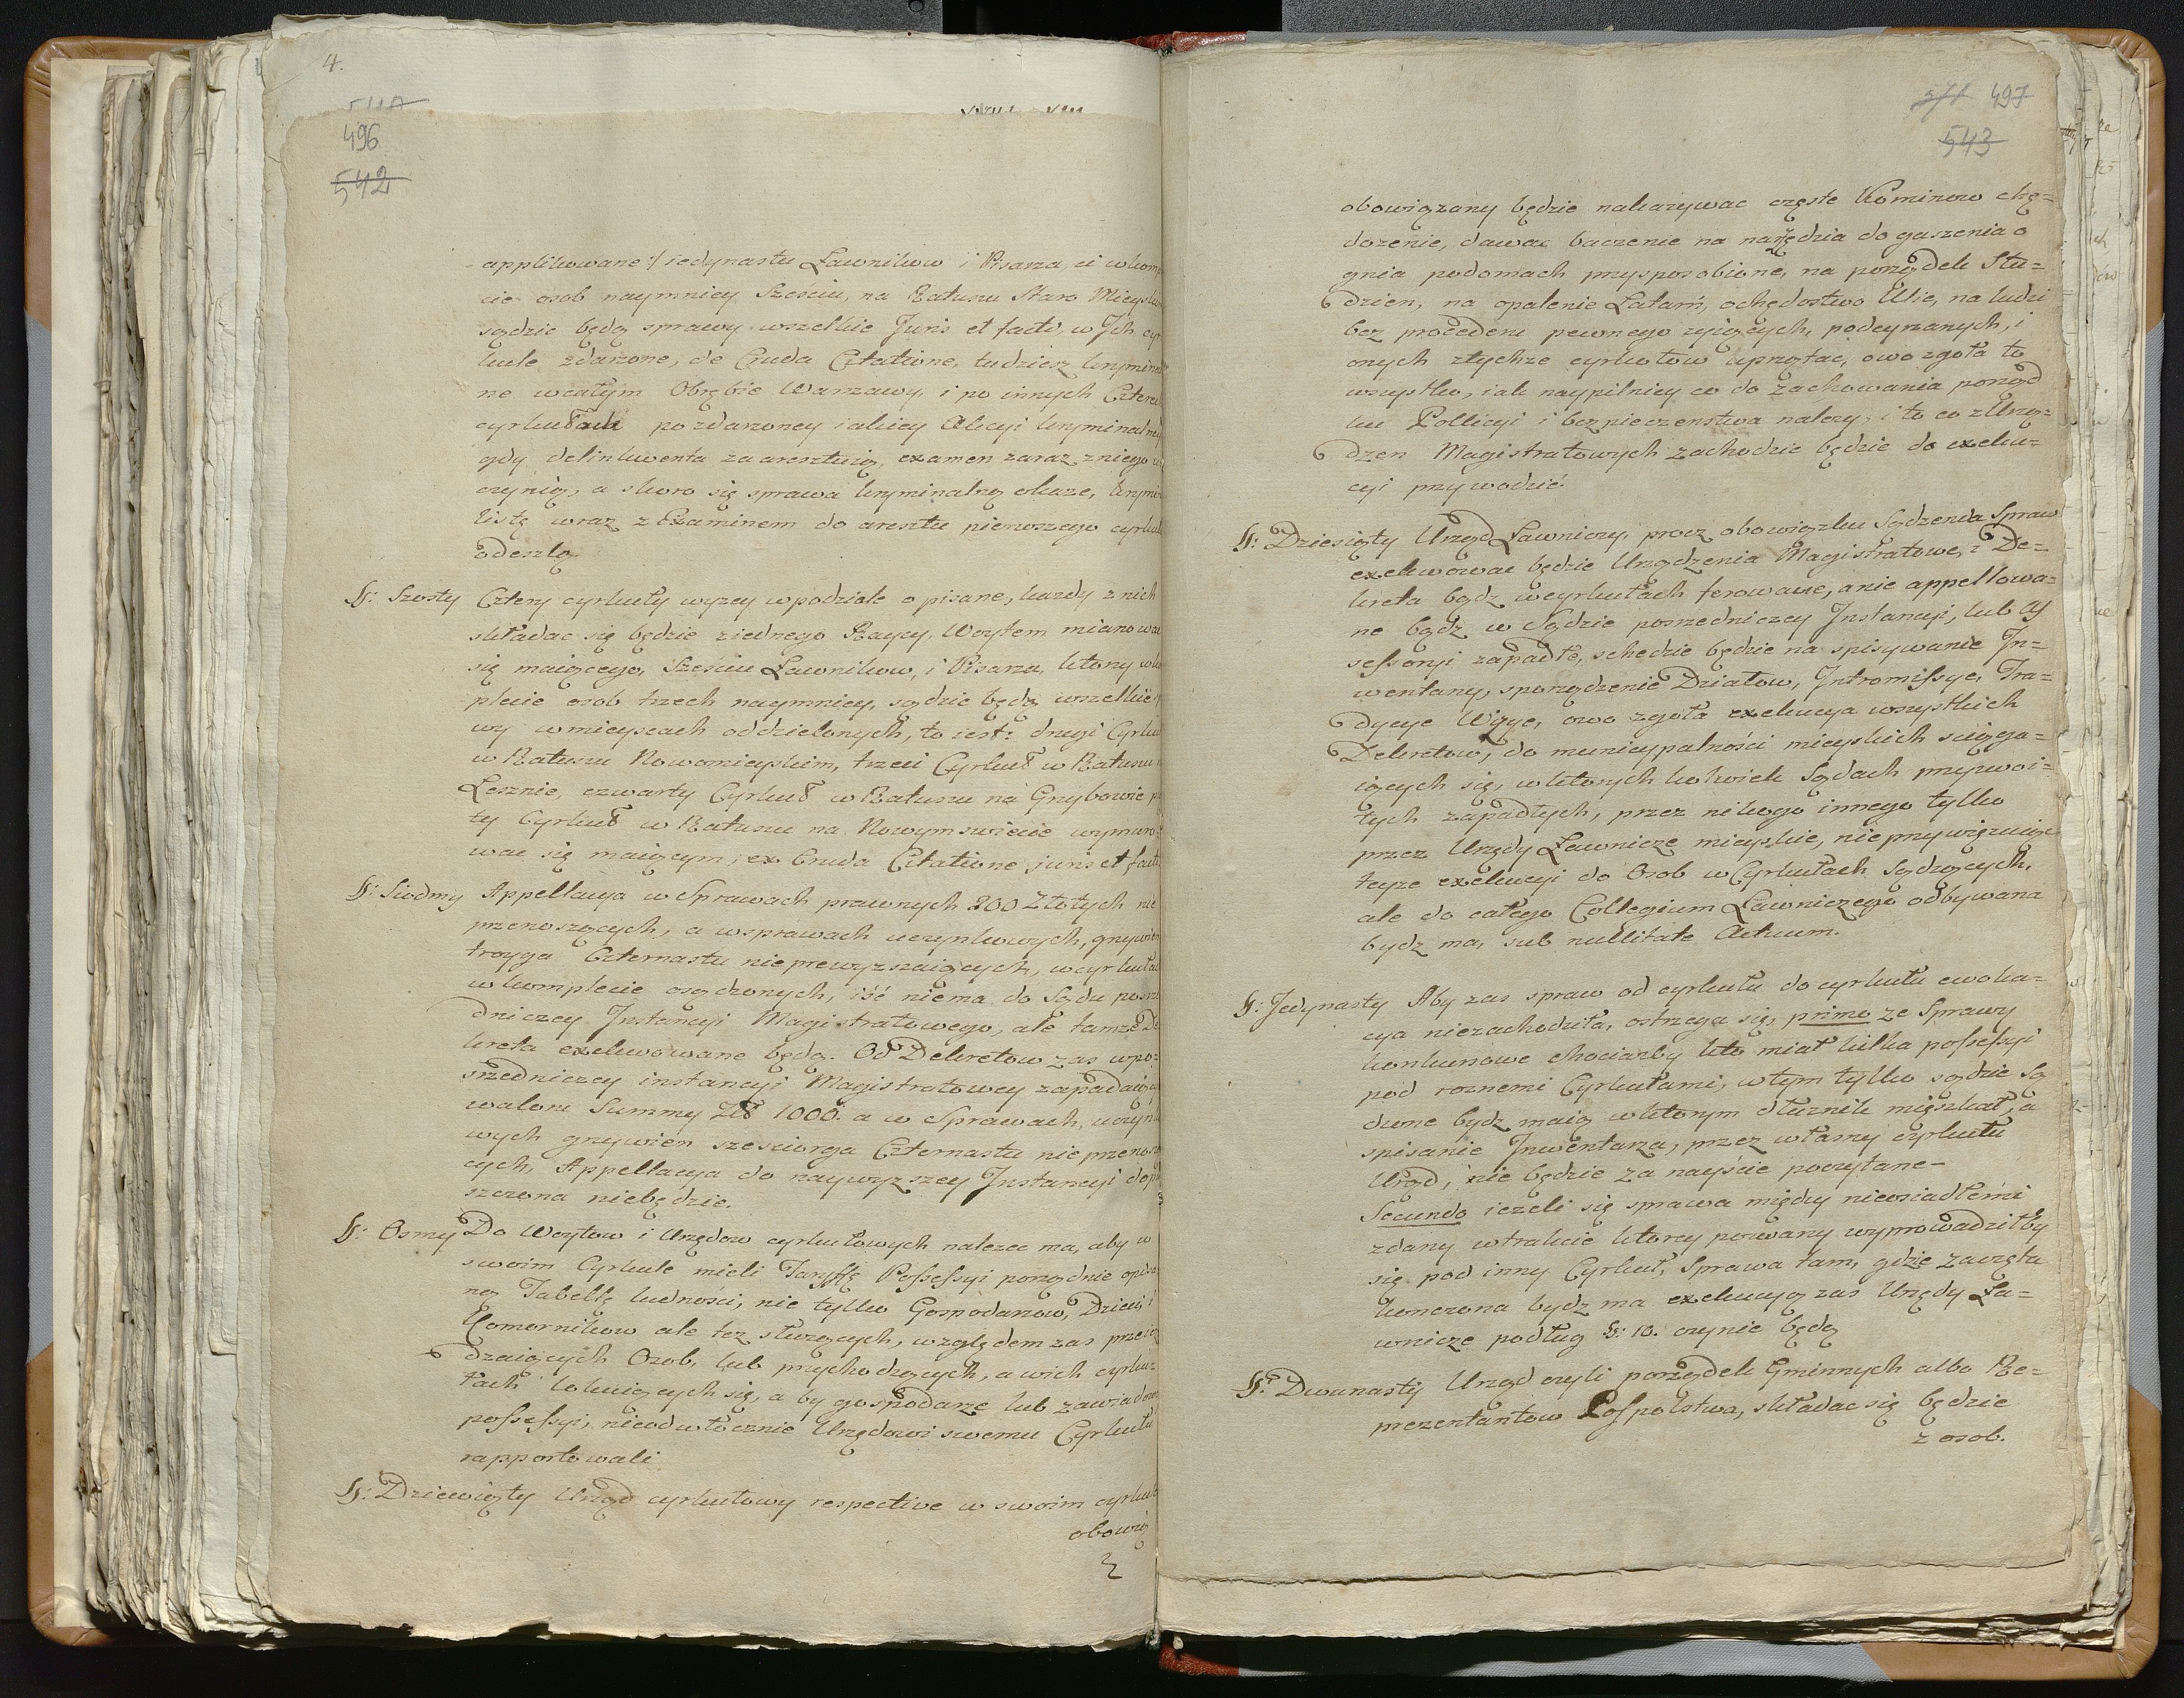 4.
496
542
applikowane:/ iedynastu Ławnikow i Pisarza, ci w kom
cie osob naymniey Sześciu, na Ratuszu Staro Mieysk
sądzic będą sprawy wszelkie Juris et facti, w Ich cyr
kule zdarzone, de Cruda Citatione, tudziesz krymina
ne wcałym Obrębie Warszawy, i po innych Czterech
cyrkułach po zdarzoney iakiey Akcyi kryminalney
gdy delinkwenta zaaresztuią, examen zaraz zniego
czynią, a skoro się sprawa kryminalną okaze, krymi
listę wraz z Examinem do aresztu pierwszego cyrkuł
odeszlą.
§: Szosty Cztery cyrkuły wyzey w podziale opisane, kazdy z nich
składac się będzie ziednego Raycy, Woytem mianowac
się maiącego, Sześciu Ławnikow, i Pisarza, ktorzy w
plecie osob trzech naymniey, sądzic będą wszelkie
wy wmieyscach oddzielonych, to iest: drugi Cyrku
w Ratuszu Nowomieyskim, trzeci Cyrkuł w Ratuszu
Lesznie, czwarty Cyrkuł w Ratuszu na Grzybowie
ty Cyrkuł w Ratuszu na Nowym swiecie wymuro
wac się maiącym, ex Cruda Citatione juris et facti
§: Siodmy Appellacya w Sprawach prawnych 200 Złotych nie
przenoszących, a wsprawach uczynkowych, grzywien
troyga Czternastu nieprzewyzszaiących, wcyrkułach
w komplecie osądzonych, iść niema do Sądu posrze
dniczey Instancyi Magistratowego, ale tamze De
kreta exekwowane będą. Od Dekretow zas w po=
srzedniczey instancyi Magistratowey zapadaią
walor Summy Złł 1000. a w Sprawach, uczynk
wych grzywien szesciorga Czternastu nie przenoszą
cych, Appellacya do naywyzszey Instancyi dop
szczona niebędzie.
§: Osmy Do Woytow i Urzędow cyrkułowych nalezec ma, aby w
swoim Cyrkule mieli Taryffę Possessyi porządnie opisa
ną Tabellę ludności, nie tylko Gospodarzow, Dzieci i
Komornikow ale tez słuzących, względem zas przeiez
dzaiących Osob, lub przychodzących, a wich cyrku=
łach lokuiących się, a by gospodarze lub zawiadow
possessyi, nieodwłocznie Urzędowi swemu Cyrkułu
rapportowali
§: Dziewiąty Urząd cyrkułowy respective w swoim cyrku
obowią
571 497
543
obowiązany będzie nakazywac częste Kominow chę=
dozenie, dawac baczenie na narzędzia do gaszenia o
gnia podomach przysposobione, na porządek Stu=
dzien, na opalenie Latarń, ochędostwo Ulic, na ludzi
bez procederu pewnego zyiących, podeyrzanych, i
onych ztychze cyrkułow uprzątac, owo zgoła to
wszystko, iak naypilniey co do zachowania porząd
ku Pollicyi i bezpieczenstwa nalezy, i to co z Urzę=
dzen Magistratowych zachodzic będzie do exeku=
cyi przywodzić.
§: Dziesiąty Urząd Ławniczy, procz obowiązku Sądzenia Spraw
exekwowac będzie Urządzenia Magistratowe, i De=
kreta bądz wcyrkułach ferowane, a nie appellowa=
ne bądz w Sądzie poszedniczey Instancyi, lub As
sessoryi zapadłe, schodzic będzie na spisywanie In=
wentarzy, sporządzenie Działow, Intromissye, Tra=
dycye Wizye, owo zgoła exekucya wszystkich
Dekretow, do municypalności mieyskich sciąga=
iących się, w ktorych kolwiek Sądach przyzwoi=
tych zapadłych, przez nikogo innego tylko
przez Urzędy Ławnicze mieyskie, nieprzywięzuiąc
teyze exekucyi do Osob w Cyrkułach Sądzących,
ale do całego Collegium Ławniczego odbywana
bydz ma, sub nullitate Actuum.
§: Jedynasty Aby zas spraw od cyrkułu do cyrkułu ewoka=
cya niezachodziła, ostrzega się, primo ze Sprawy
konkursowe chociazby kto miał kilka possessyi
pod roznemi Cyrkułami, w tym tylko sądzie Są
dzone bydz maią w ktorym dłuznik mięszkał, a
spisanie Inwentarza, przez własny cyrkułu
Urząd, nie będzie za nayście poczytane-
Secundo iezeli się sprawa między nieosiadłemi
zdarzy w trakcie ktorey pozwany wyprowadziłby
się pod inny Cyrkuł, Sprawa tam, gdzie zaczęta
konczona bydz ma exekucyą zas Urzędy Ła=
wnicze podług §: 10. czynic będą
§: Dwunasty Urząd czyli porządek Gminnych albo Re=
prezentantow Pospolstwa, składac się będzie
z osob.